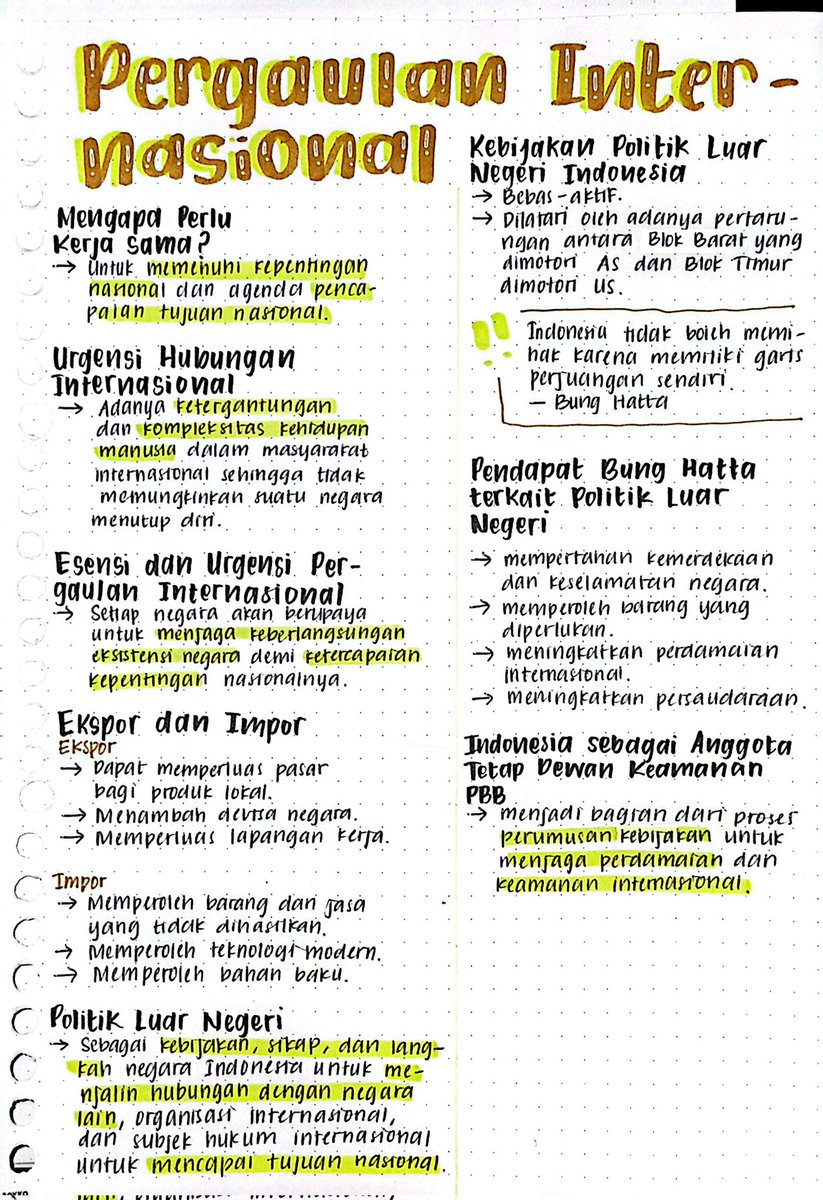 Pergaulan Inter-
nasional
Mengapa Perlu
Kerja Sama?
→ Untuk memenuhi kepentingan
nasional dan agenda penca-
paian tujuan nasional.
Urgensi Hubungan
Internasional
→ Adanya ketergantungan
dan kompleksitas kehidupan
manusia dalam masyarakat
internasional sehingga tidak
memungkinkan suatu negara
menutup diri.
Esensi dan Urgensi Per-
gaulan Internasional
→ Setiap negara akan berupaya
untuk menjaga keberlangsungan
eksistensi negara demi ketercapaian
kepentingan nasionalnya.
Ekspor dan Impor
Ekspor
→ Dapat memperluas pasar
bagi produk lokal.
→ Menambah devisa negara.
→ Memperluas lapangan kerja.
Impor
→ Memperoleh barang dan jasa
yang tidak dihasilkan.
→ Memperoleh teknologi modern.
→ Memperoleh bahan baku.
Politik Luar Negeri
→ Sebagai kebijakan, sikap, dan lang-
kah negara Indonesia untuk me-
njalin hubungan dengan negara
lain, organisasi internasional,
dan subjek hukum internasional
untuk mencapai tujuan nasional.
Kebijakan Politik Luar
Negeri Indonesia
→ Bebas-aktif.
→ Dilatari oleh adanya pertaru-
ngan antara Blok Barat yang
dimotori AS dan Blok Timur
dimotori US.
!! Indonesia tidak boleh memi-
hak karena memiliki garis
perjuangan sendiri.
– Bung Hatta
Pendapat Bung Hatta
terkait Politik Luar
Negeri
→ mempertahan kemerdekaan
dan keselamatan negara.
→ memperoleh barang yang
diperlukan.
→ meningkatkan perdamaian
internasional.
→ meningkatkan persaudaraan.
Indonesia sebagai Anggota
Tetap Dewan Keamanan
PBB
→ menjadi bagian dari proses
perumusan kebijakan untuk
menjaga perdamaian dan
keamanan internasional.